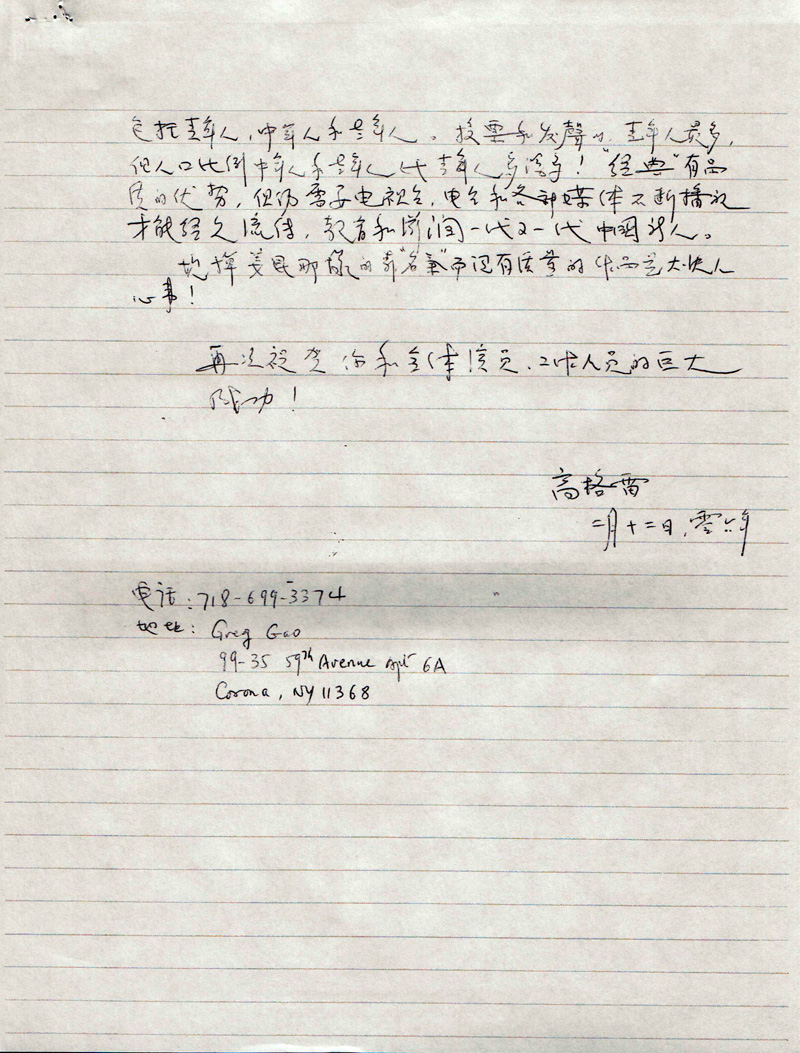 包括青年人，中年人和老年人。投票和发聲的，青年人最多，
但人口比例中年人和老年人比青年人多得多！“经典”有品
质的优势，但仍需要电视台，电台和各种媒体不断播放
才能经久流传，教育和滋润一代又一代中國新人。
姜昆那樣的靠“名氣”而没有质量的作品是大快人
心事！
再次祝贺你和全体演员、工作人员的巨大
成功！
高格雷
二月十二日，零六年
电话：718-699-3374
地址：Greg Gao
99-35 59th Avenue Apt 6A
Corona, NY 11368